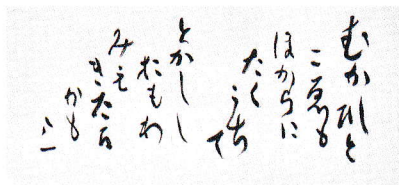 むかしひと
こゑも
ほからに
たくうち
て
とかしし
おもわ
みえ
きたる
かも
八一